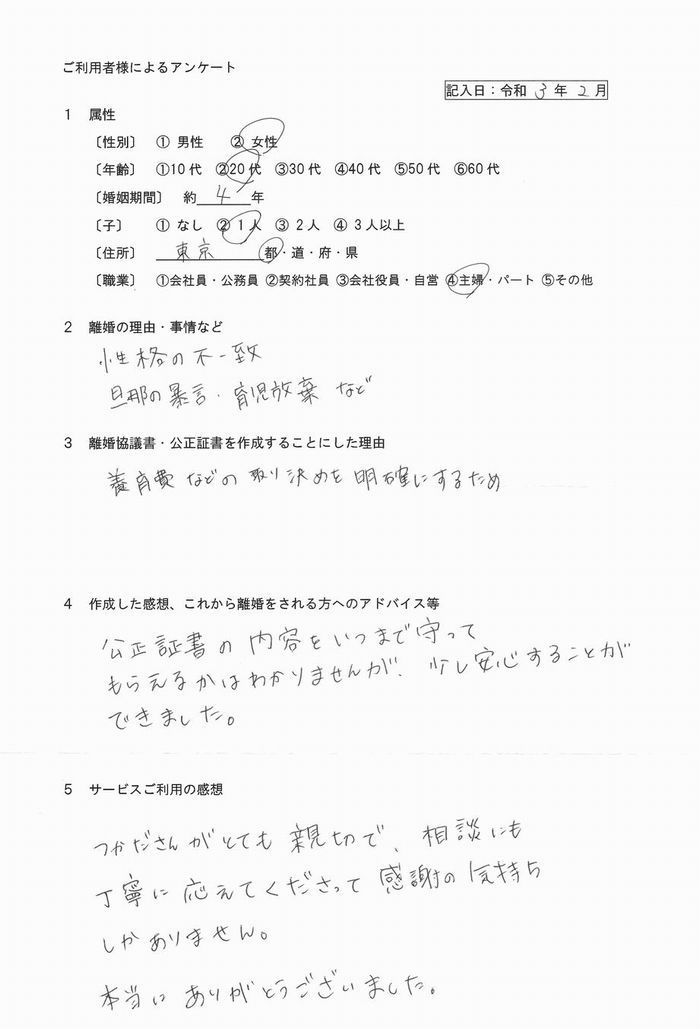 ご利用者様によるアンケート
記入日：令和 3 年 2 月
1 属性
〔性別〕 ① 男性 ② 女性
〔年齢〕 ①10代 ②20代 ③30代 ④40代 ⑤50代 ⑥60代
〔婚姻期間〕 約 4 年
〔子〕 ① なし ② 1人 ③ 2人 ④ 3人以上
〔住所〕 東京 都・道・府・県
〔職業〕 ①会社員・公務員 ②契約社員 ③会社役員・自営 ④主婦・パート ⑤その他
2 離婚の理由・事情など
性格の不一致
旦那の暴言・育児放棄 など
3 離婚協議書・公正証書を作成することにした理由
養育費などの取り決めを明確にするため
4 作成した感想、これから離婚をされる方へのアドバイス等
公正証書の内容をいつまで守って
もらえるかはわかりませんが、少し安心することが
できました。
5 サービスご利用の感想
つかださんがとても親切で、相談にも
丁寧に応えてくださって感謝の気持ち
しかありません。
本当にありがとうございました。